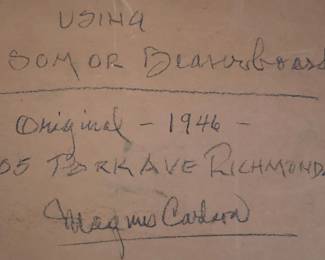 USING
SOM OR Beaverboard
Original - 1946 -
05 PARK AVE RICHMOND
Magnus Carlson